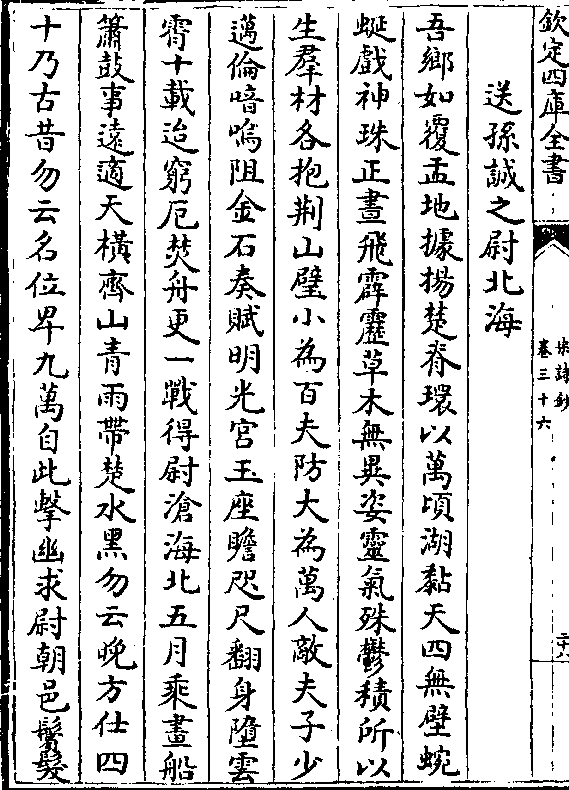 欽定四庫全書
宋詩鈔
卷三十六
送孫誠之尉北海
吾鄉如覆盂地據揚楚脊環以萬頃湖黏天四無壁蜿
蜒戲神珠正晝飛霹靂草木無異姿靈氣殊鬱積所以
生羣材各抱荆山璧小為百夫防大為萬人敵夫子少
邁倫喑嗚阻金石奏賦明光宫玉座瞻咫尺翻身墮雲
霄十載迨窮厄焚舟更一戰得尉滄海北五月乘畫船
簫鼓事遠適天橫齊山青雨帶楚水黑勿云晚方仕四
十乃古昔勿云名位卑九萬自此擊幽求尉朝邑鬢髮